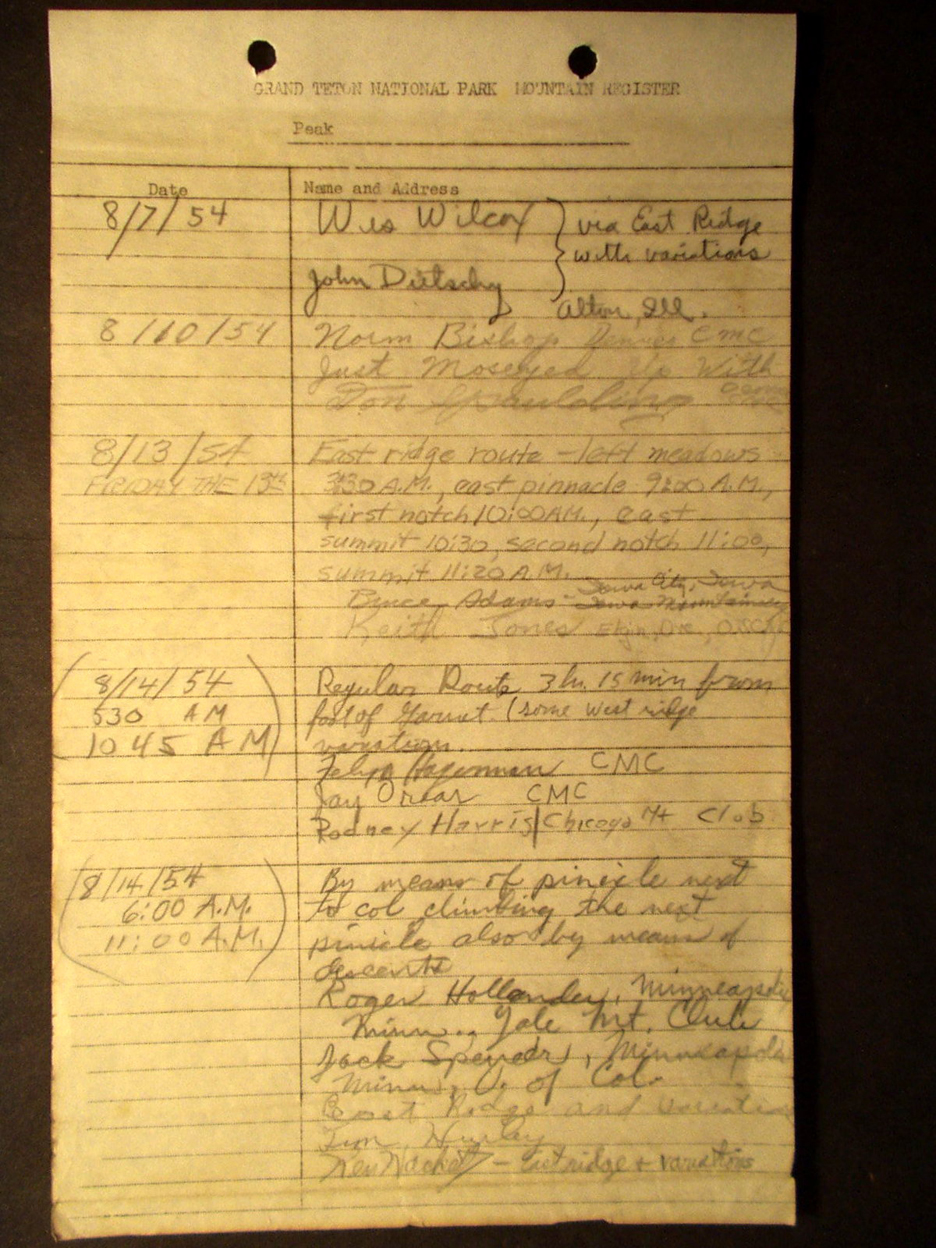 GRAND TETON NATIONAL PARK MOUNTAIN REGISTER
Peak
Date Name and Address
8/7/54 Wes Wilcox } via East Ridge
with variations
John Dietschy
Alton, Ill.
8/10/54 Norm Bishop Denver CMC
Just Moseyed Up With
Don Spaulding
8/13/54 East ridge route - left meadows
FRIDAY THE 13th 3:30 A.M., east pinnacle 9:00 A.M.,
first notch 10:00 AM., east
summit 10:30, second notch 11:00,
summit 11:20 A.M.
Iowa City, Iowa
Bruce Adams - Iowa Mountaineers
Keith Jones Elgin, Ore.,
8/14/54 Regular Route 3 hr. 15 min from
530 AM foot of Garnet. (some west ridge
10 45 AM variation.
Hagerman CMC
Jay Orear CMC
Rodney Harris/Chicago Mt Club
8/14/54 By means of pinicle next
6:00 A.M. to col climbing the next
11:00 A.M. pinicle also by means of
descents
Roger Hollander, Minneapolis
Minn., Yale Mt. Club
Jack Spencer, Minneapolis
Minn., U. of Col.
East Ridge and variation
Jim Hurley
- East ridge + variations